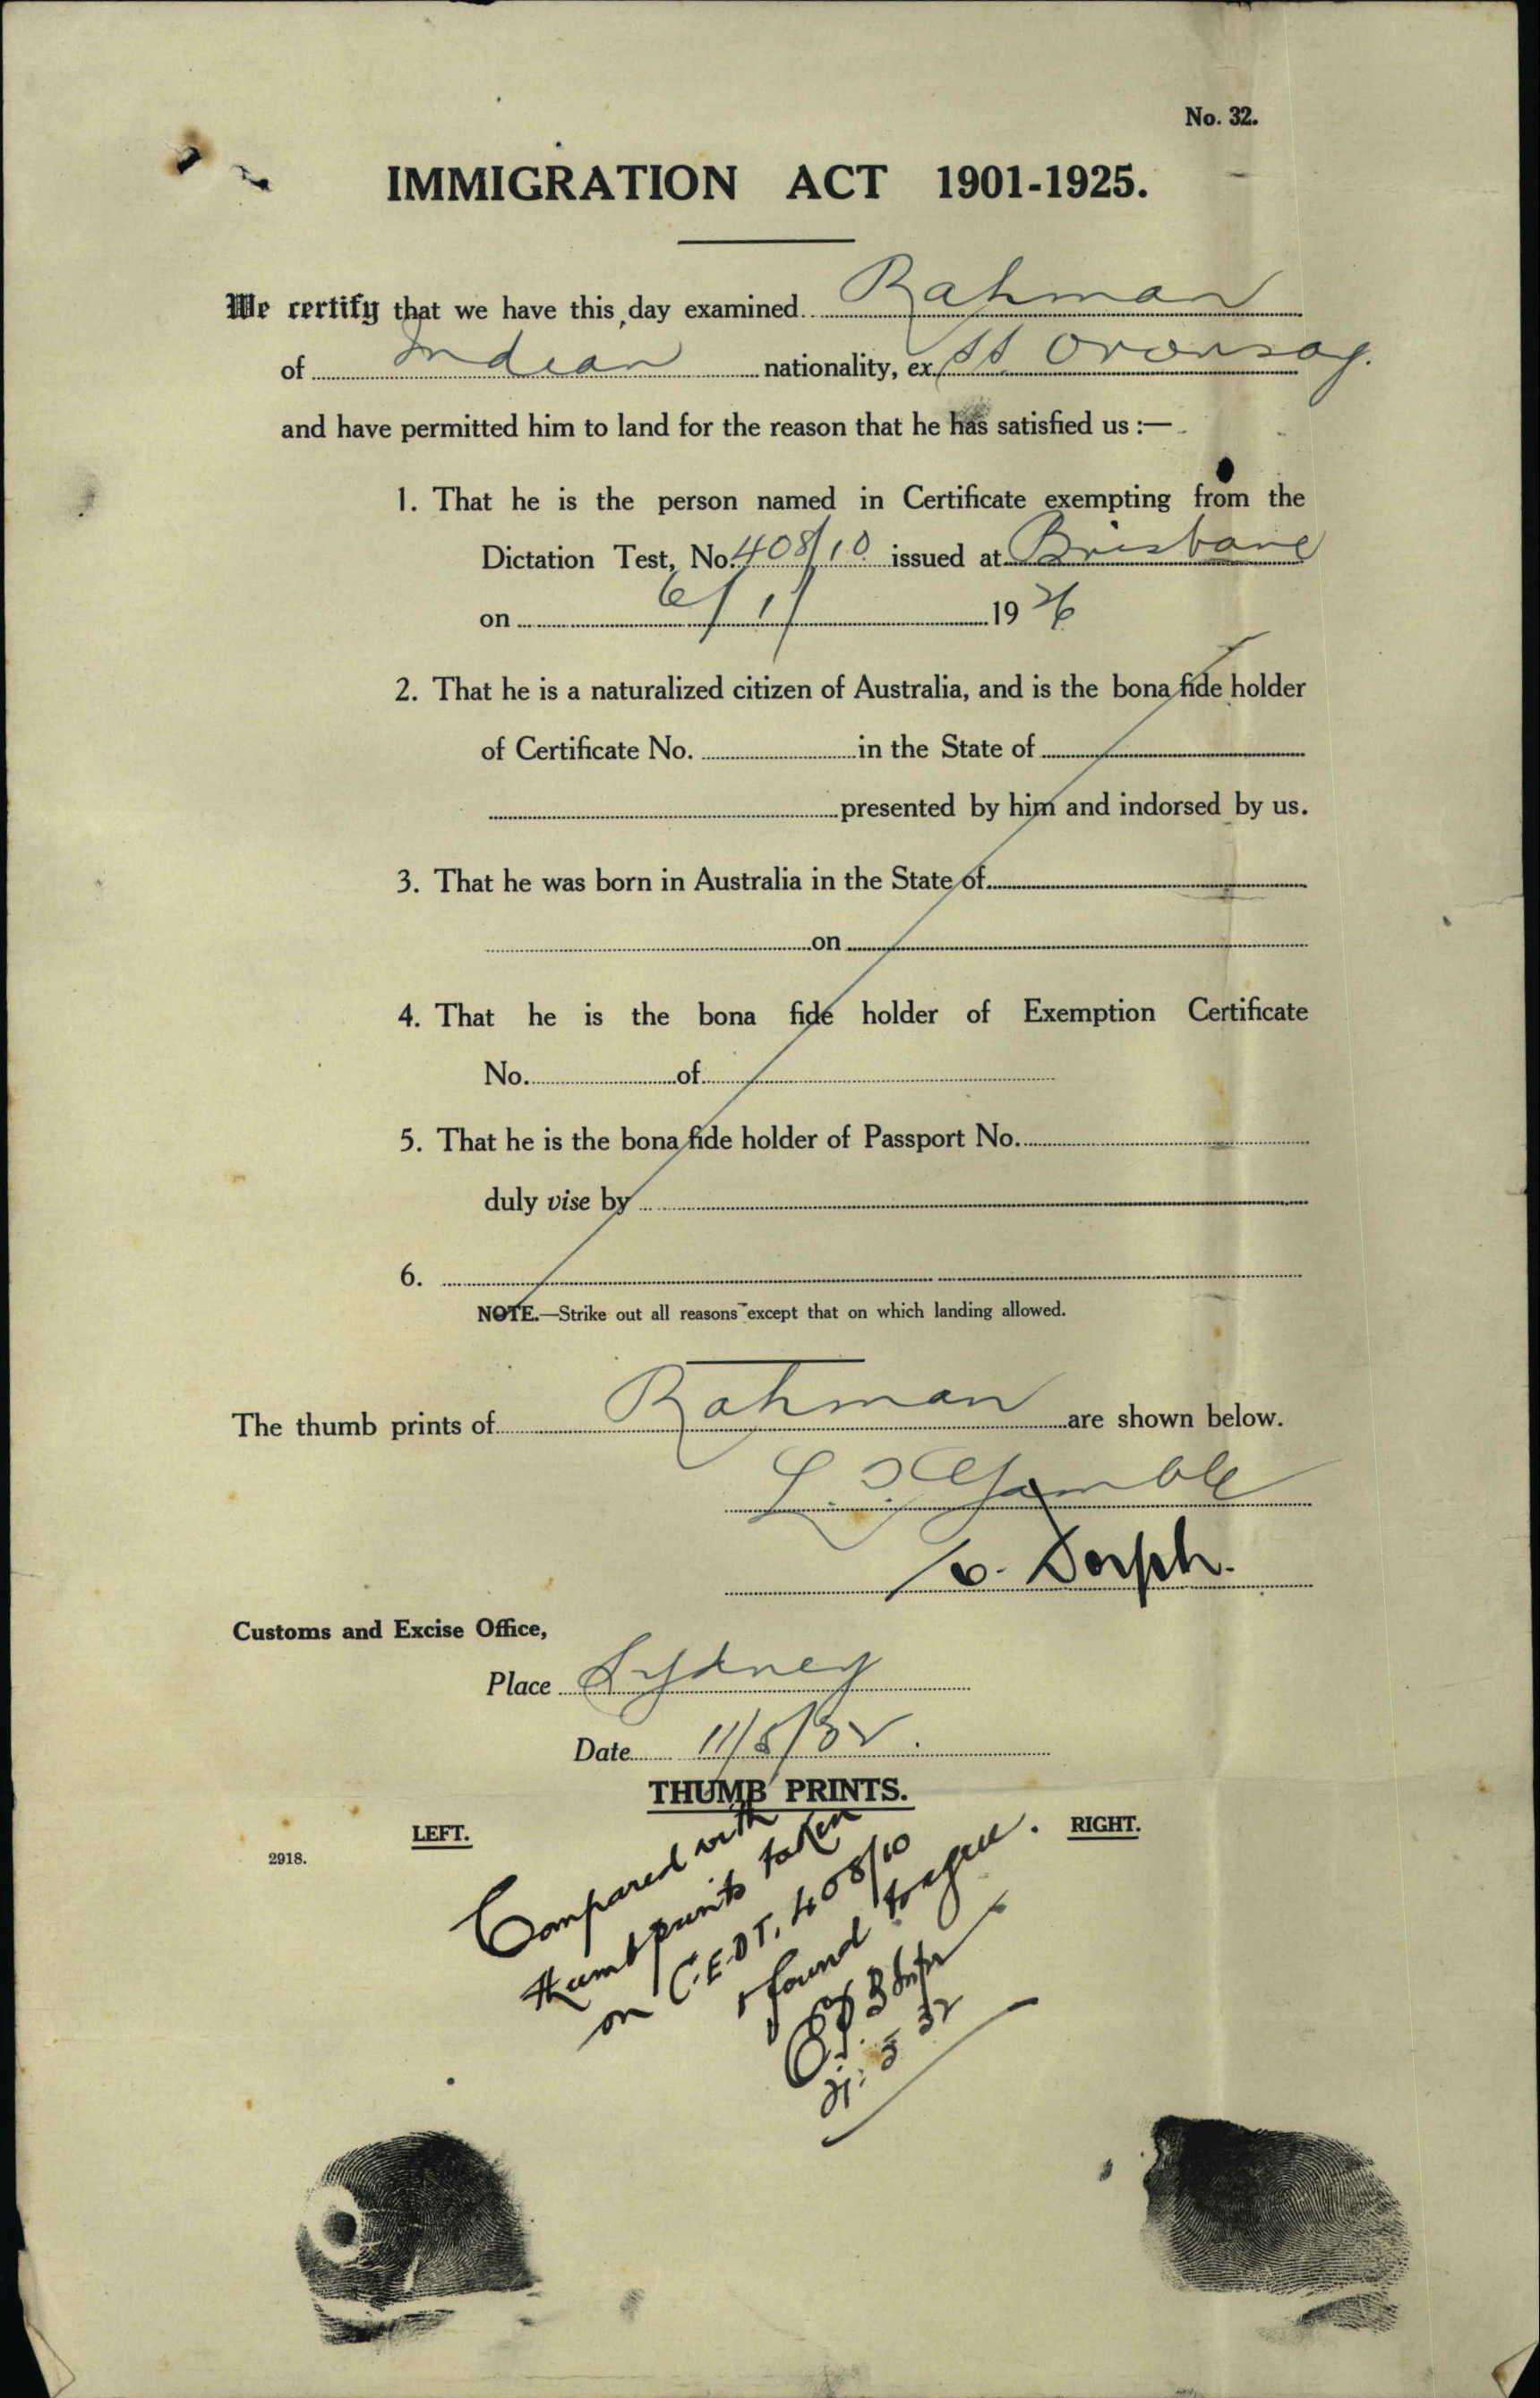 No. 32.
IMMIGRATION ACT 1901-1925.
We certify that we have this day examined Rahman
of Indian nationality, ex SS. Oronsay.
and have permitted him to land for the reason that he has satisfied us :—
1. That he is the person named in Certificate exempting from the
Dictation Test, No. 408/10 issued at Brisbane
on 6/1/ 1926
2. That he is a naturalized citizen of Australia, and is the bona fide holder
of Certificate No. in the State of
presented by him and indorsed by us.
3. That he was born in Australia in the State of
on
4. That he is the bona fide holder of Exemption Certificate
No. of
5. That he is the bona fide holder of Passport No.
duly vise by
6.
NOTE.—Strike out all reasons except that on which landing allowed.
The thumb prints of Rahman are shown below.
Gamble
Dorph.
Customs and Excise Office,
Place Sydney
Date 11/5/32.
THUMB PRINTS.
LEFT.
RIGHT.
2918.
Compared with
thumb prints taken
on C.E.D.T. 408/10
& found to agree.